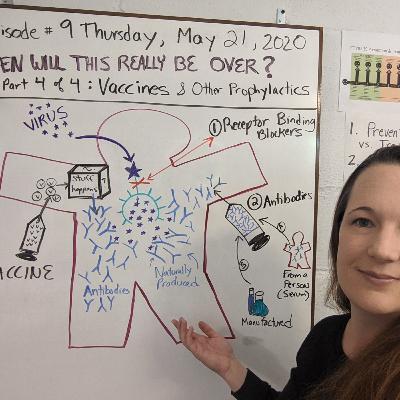 isode # 9 Thursday, May 21, 2020
EN WILL THIS REALLY BE OVER?
Part 4 of 4: Vaccines & Other Prophylactics
VIRUS
① Receptor Binding
Blockers
STUFF
happens
② Antibodies
ACCINE
Antibodies
Naturally
Produced
From a
Person
(Serum)
Manufactured
1. Preven
vs. Tr
2.